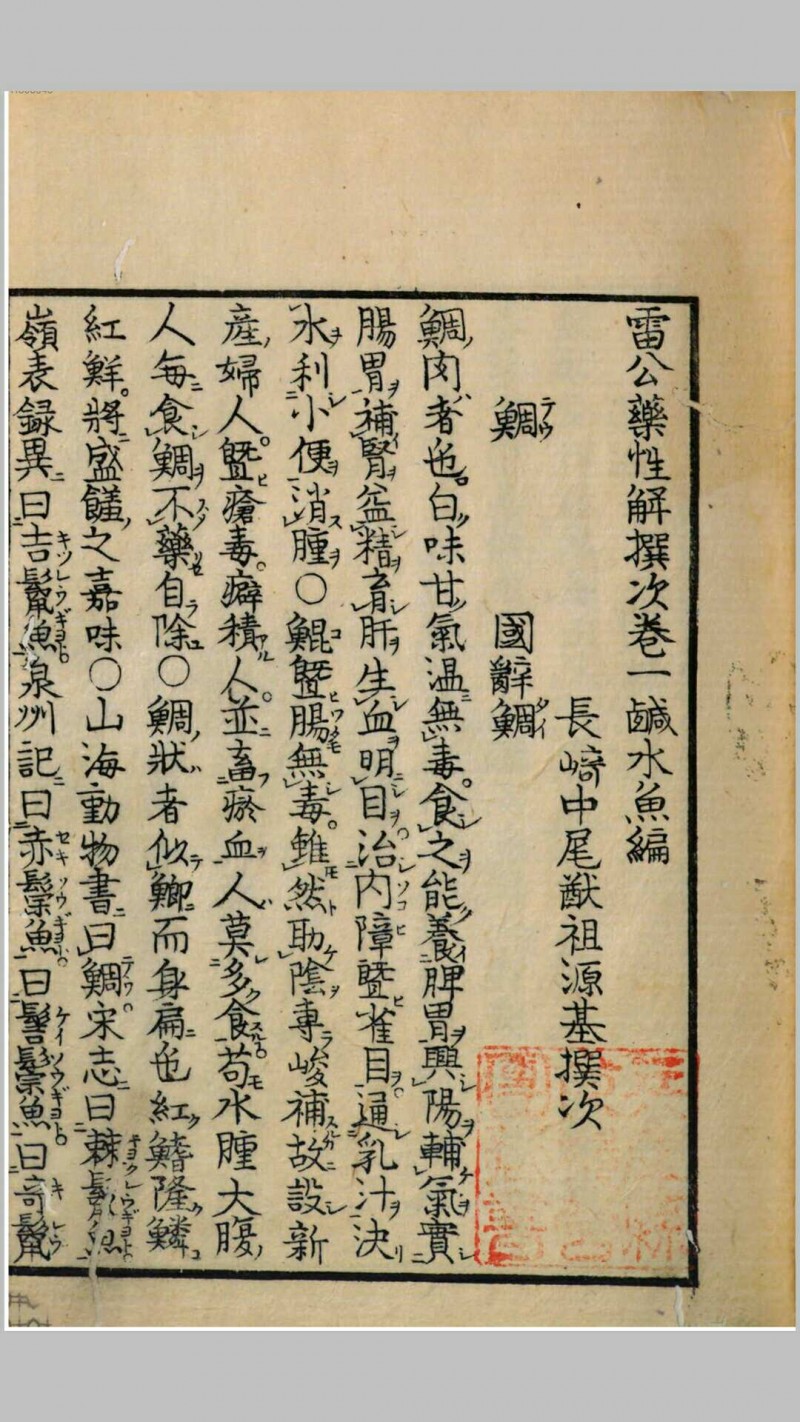 雷公藥性解撰次卷一鹹水魚編
長﨑中尾猷祖源基撰次
鯛 國辭鯛
鯛肉者色白味甘氣温無毒食之能養脾胃興陽輔氣實
腸胃補腎益精育肝生血明目治内障曁雀目通乳汁決
水利小便消腫〇鯤曁腸無毒雖然助陰專峻補故設新
産婦人曁瘡毒癖積人並畜瘀血人莫多食苟水腫大腹
人每食鯛不藥自除〇鯛狀者似鯽而身扁色紅鰭隆鱗
紅鮮將盛饈之嘉味〇山海動物書曰鯛宋志曰棘鬛魚
嶺表録異曰吉鬣魚泉州記曰赤鬃魚曰髻鬃魚曰奇鬣